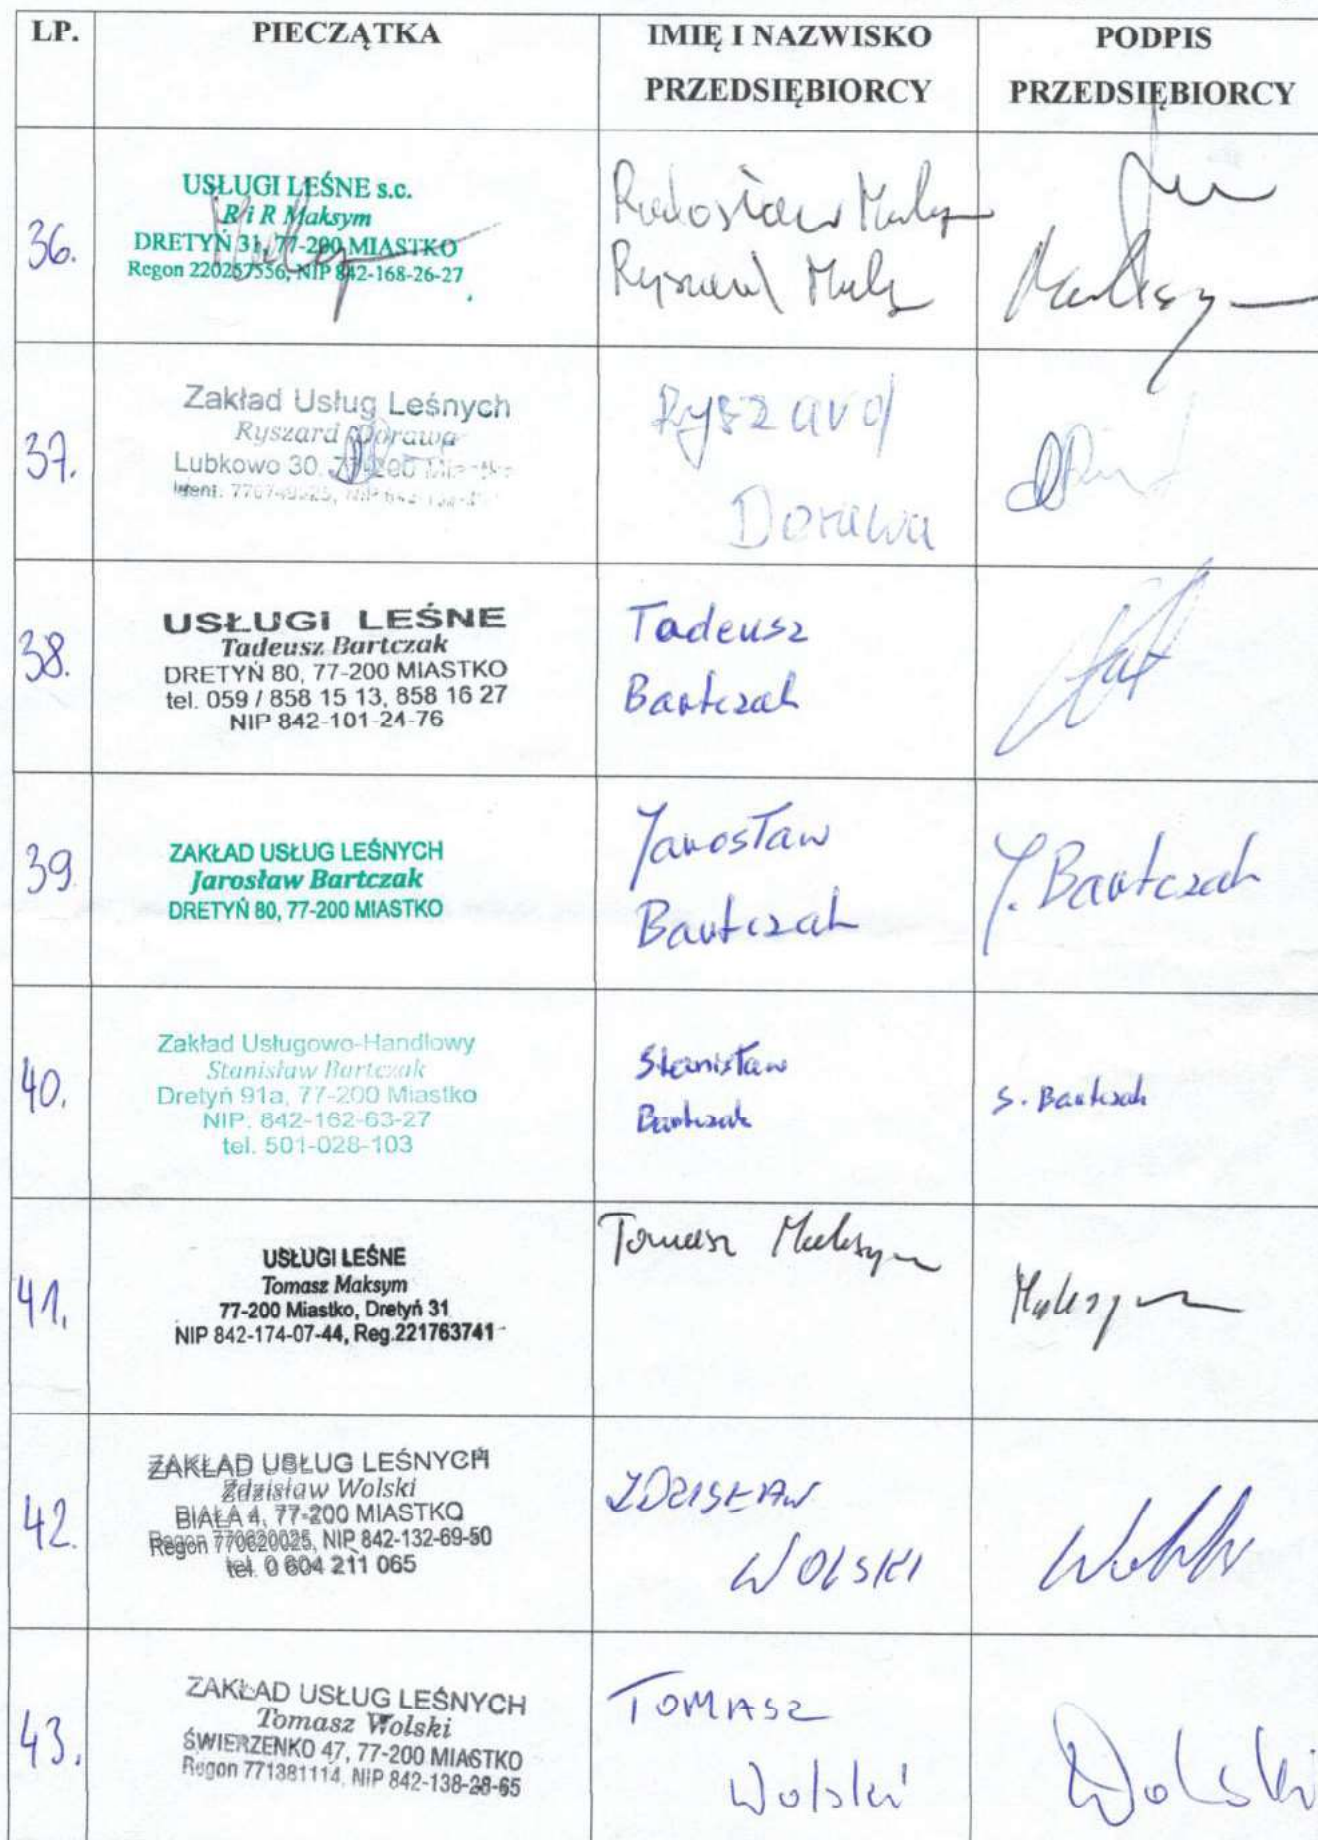 LP.
PIECZĄTKA
IMIĘ I NAZWISKO
PRZEDSIĘBIORCY
PODPIS
PRZEDSIĘBIORCY
36.
USŁUGI LEŚNE s.c.
R i R Maksym
DRETYŃ 31, 77-200 MIASTKO
Regon 220257556, NIP 842-168-26-27
Radosław
Ryszard
Maksym
37.
Zakład Usług Leśnych
Ryszard Dorawa
Lubkowo 30, 77-200 Miastko
Ryszard
Dorawa
38.
USŁUGI LEŚNE
Tadeusz Bartczak
DRETYŃ 80, 77-200 MIASTKO
tel. 059 / 858 15 13, 858 16 27
NIP 842-101-24-76
Tadeusz
Bartczak
39.
ZAKŁAD USŁUG LEŚNYCH
Jarosław Bartczak
DRETYŃ 80, 77-200 MIASTKO
Jarosław
Bartczak
J. Bartczak
40.
Zakład Usługowo-Handlowy
Stanisław Bartczak
Dretyń 91a, 77-200 Miastko
NIP: 842-162-63-27
tel. 501-028-103
Stanisław
Bartczak
S. Bartczak
41.
USŁUGI LEŚNE
Tomasz Maksym
77-200 Miastko, Dretyń 31
NIP 842-174-07-44, Reg.221763741
Tomasz Maksym
Maksym
42.
ZAKŁAD USŁUG LEŚNYCH
Zdzisław Wolski
BIAŁA 4, 77-200 MIASTKO
Regon 770620025, NIP 842-132-69-50
tel. 0 604 211 065
ZDZISŁAW
WOLSKI
43.
ZAKŁAD USŁUG LEŚNYCH
Tomasz Wolski
ŚWIERZENKO 47, 77-200 MIASTKO
Regon 771381114, NIP 842-138-28-65
TOMASZ
Wolski
Wolski